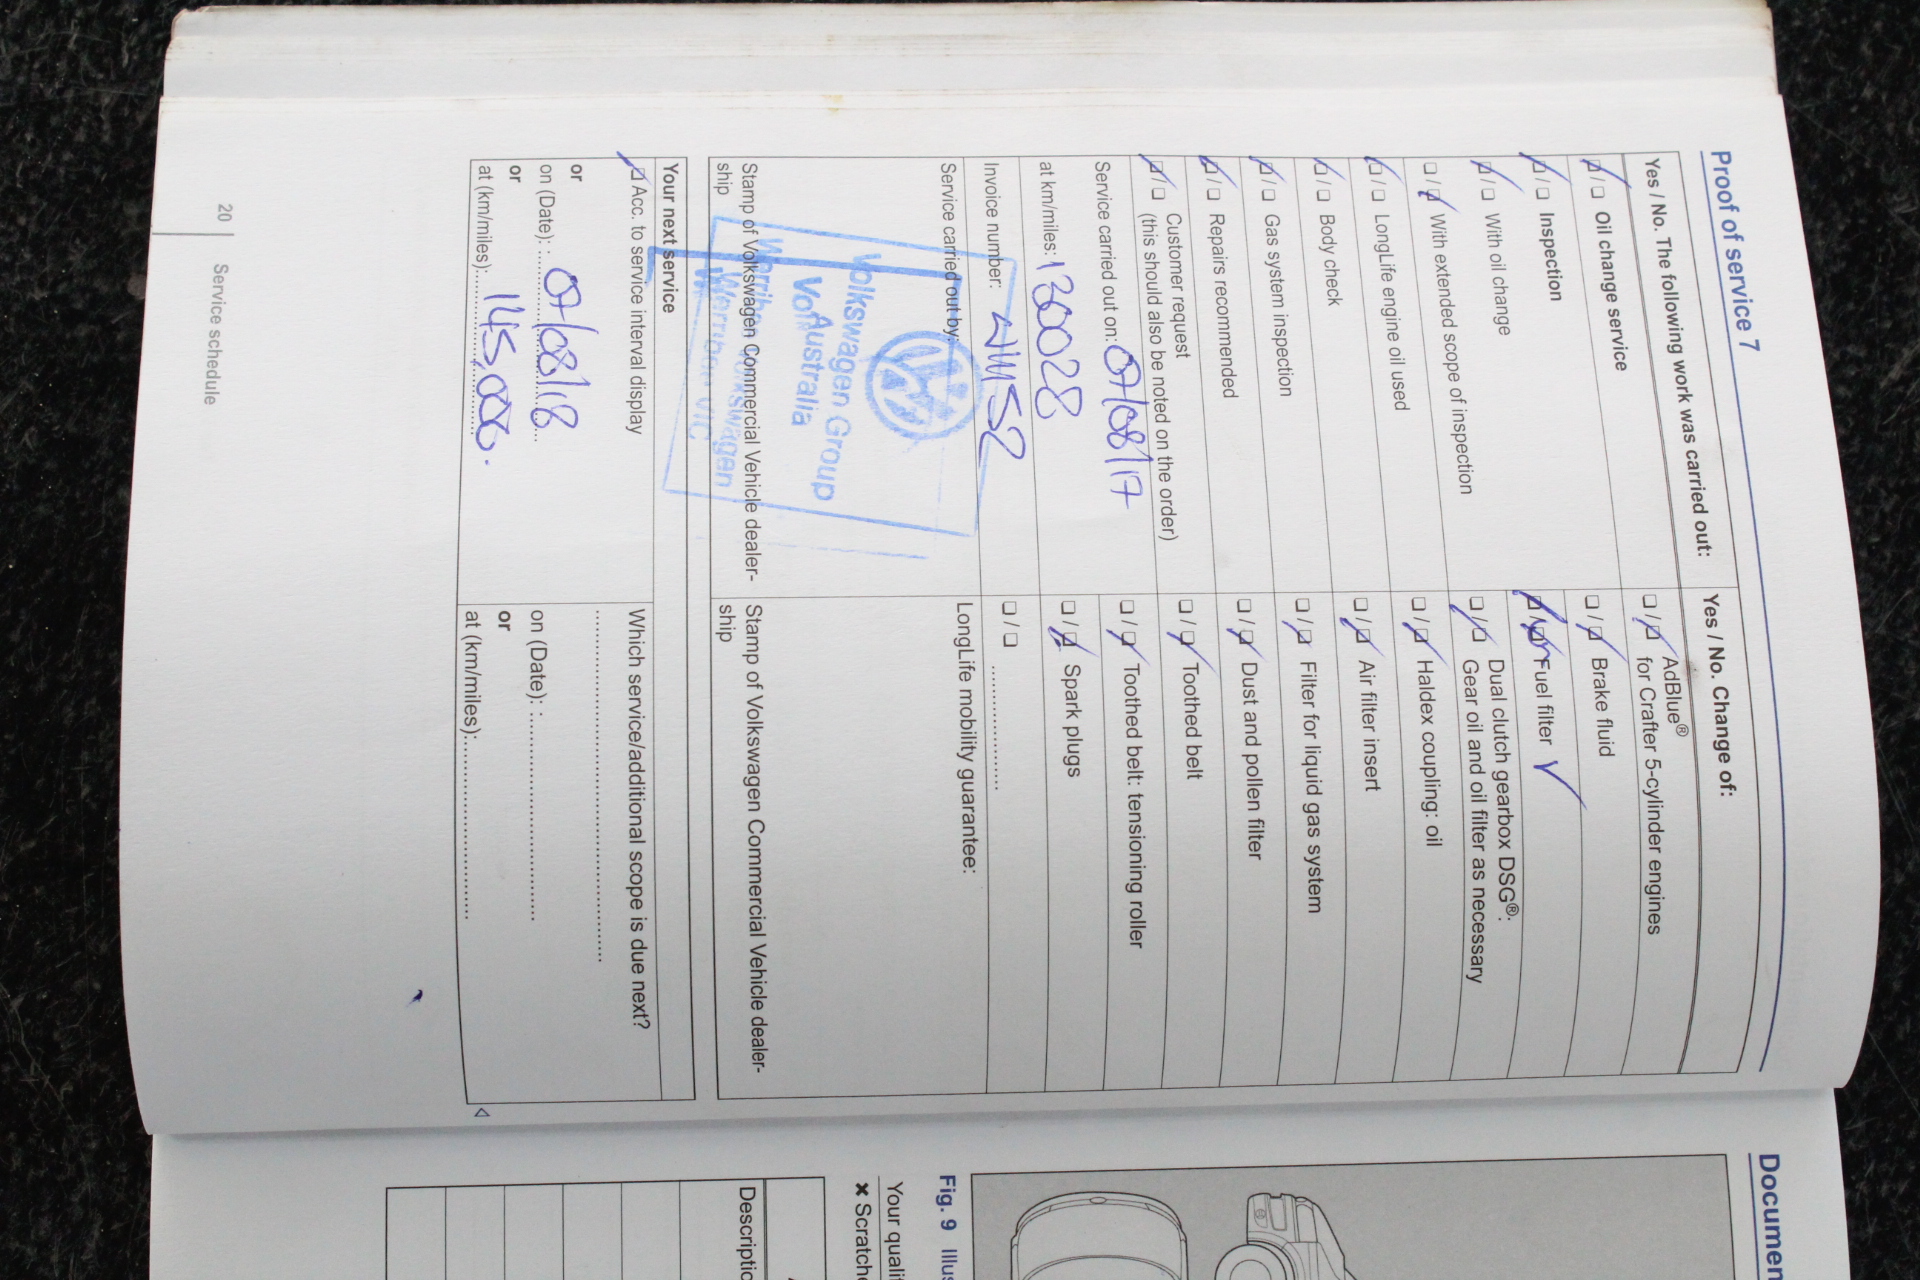 Proof of service 7
Yes / No. The following work was carried out:
☑ / ☐ Oil change service
☑ / ☐ Inspection
☑ / ☐ With oil change
☐ / ☑ With extended scope of inspection
☑ / ☐ LongLife engine oil used
☑ / ☐ Body check
☑ / ☐ Gas system inspection
☑ / ☐ Repairs recommended
☑ / ☐ Customer request
(this should also be noted on the order)
Service carried out on: 07/08/17
at km/miles: 130028
Invoice number:
Service carried out by:
Volkswagen Group
Australia
Werribee Volkswagen
Werribee VIC
Stamp of Volkswagen Commercial Vehicle dealer-
ship
Yes / No. Change of:
☐ / ☑ AdBlue®
for Crafter 5-cylinder engines
☐ / ☑ Brake fluid
☑ / ☑ Fuel filter ✓
☐ / ☑ Dual clutch gearbox DSG®:
Gear oil and oil filter as necessary
☐ / ☑ Haldex coupling: oil
☐ / ☑ Air filter insert
☐ / ☑ Filter for liquid gas system
☐ / ☑ Dust and pollen filter
☐ / ☑ Toothed belt
☐ / ☑ Toothed belt: tensioning roller
☐ / ☑ Spark plugs
☐ / ☐ ....................
LongLife mobility guarantee:
Stamp of Volkswagen Commercial Vehicle dealer-
ship
Your next service
☑ Acc. to service interval display
or
on (Date): 07/08/18
or
at (km/miles): 145,000.
Which service/additional scope is due next?
on (Date):
or
at (km/miles):
20
Service schedule
Fig. 9
Your
Scratche